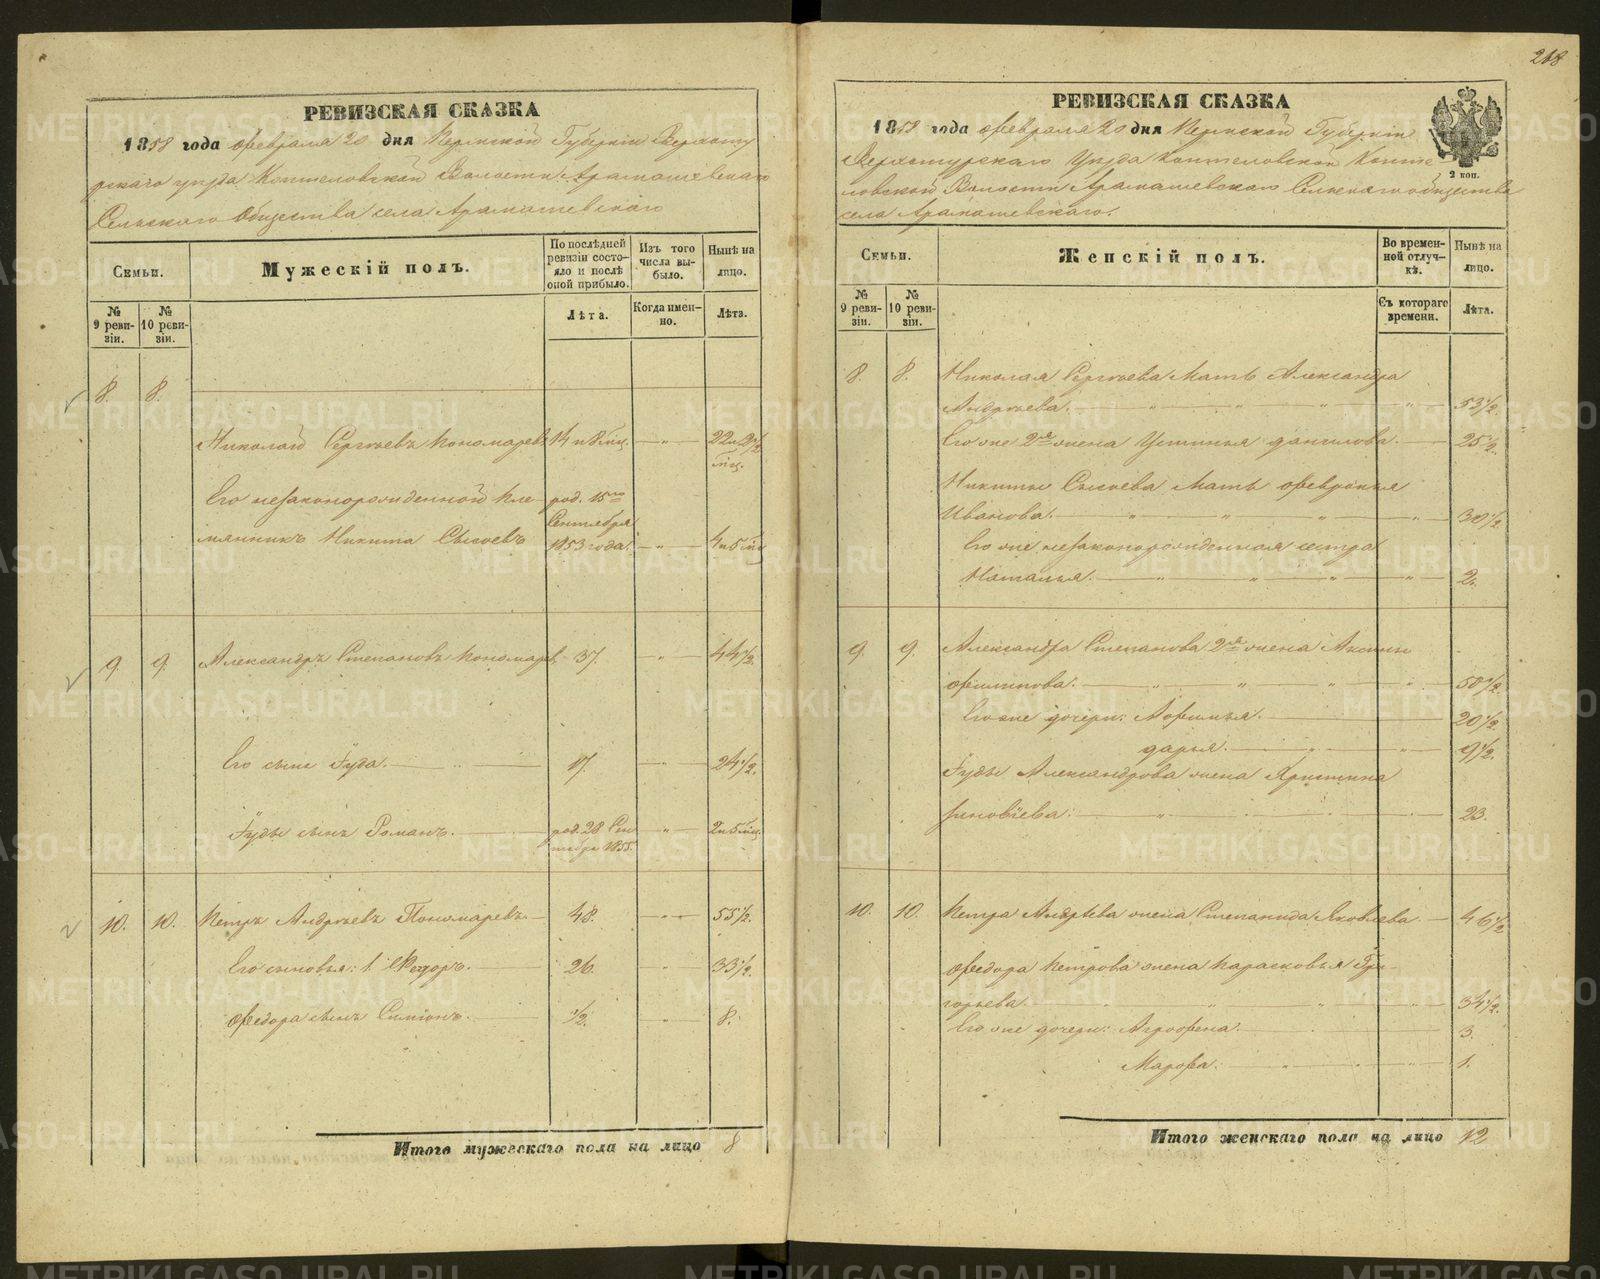 218
РЕВИЗСКАЯ СКАЗКА
1858 года февраля 20 дня Пермской Губернiи Верхоту
рскаго уѣзда Коптеловской Волости Арамашевскаго
Сельскаго Общества села Арамашевскаго
Семьи.
Мужескій полъ.
По послѣдней ревизіи состояло и послѣ оной прибыло.
Изъ того числа выбыло.
Нынѣ на лицо.
№ 9 ревизіи.
№ 10 ревизіи.
Лѣта.
Когда именно.
Лѣта.
8. 8.
Николай Сергѣевъ Пономаревъ 14 и 8 мц. 22 и 2 1/2 мц.
Его незаконорожденной пле- род. 15го
Сентября
мянникъ Никита Сысоевъ 1853 года. 4 и 5 мц
9. 9. Александръ Степановъ Пономарев 37. 44 1/2.
Его сынъ Іуда. 17. 24 1/2.
Іуды сынъ Романъ. род. 28 Сен 2 и 5 мц.
тября 1855.
10. 10. Петръ Андрѣевъ Пономаревъ. 48. 55 1/2.
Его сыновья: 1 Ѳедоръ. 26. 33 1/2.
Ѳедора сынъ Симіонъ. 1/2. 8.
Итого мужескаго пола на лицо 8
РЕВИЗСКАЯ СКАЗКА
1858 года февраля 20 дня Пермской Губернiи
Верхотурскаго Уѣзда Коптеловской Копте-
ловской Волости Арамашевскаго Сельскаго общества
села Арамашевскаго.
2 коп.
Семьи.
Женскій полъ.
Во временной отлучкѣ.
Нынѣ на лицо.
№ 9 ревизіи.
№ 10 ревизіи.
Съ котораго времени.
Лѣта.
8. 8. Николая Сергѣева Мать Александра
Андрѣева. 53 1/2.
Его же 2я жена Устинья Данилова. 25 1/2.
Никиты Сысоева Мать Февронья
Иванова. 30 1/2
Его же незаконорожденная сестра
Наталья. 2.
9. 9. Александра Степанова 2я жена Аксинья
Филипова. 50 1/2
Его же дочери: Афимья. 20 1/2.
Дарья. 9 1/2.
Іуды Александрова жена Християна
Зиновіева: 23.
10. 10. Петра Андрѣева жена Степанида Яковлева. 46 1/2
Ѳедора Петрова жена Парасковья Гри-
горьева. 34 1/2.
Его же дочери: Агрофена. 3.
Марфа. 1.
Итого женскаго пола на лицо 12
METRIKI.GASO-URAL.RU